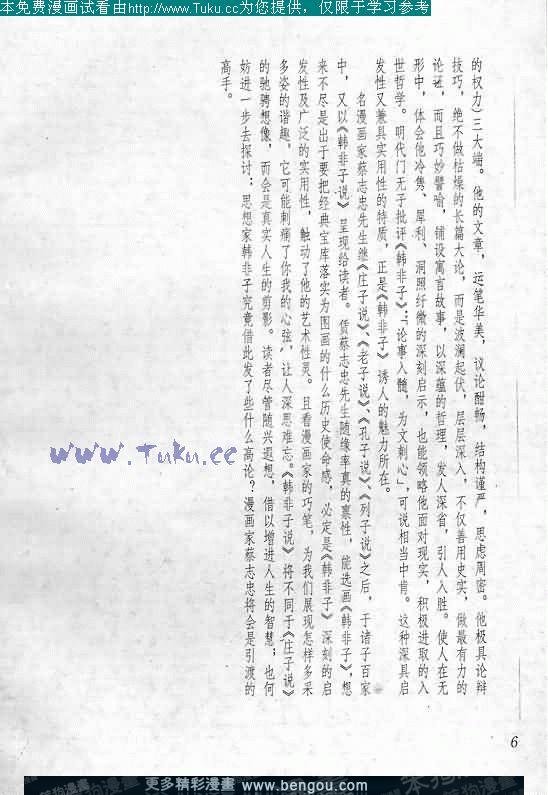 本免费漫画试看由http://www.Tuku.cc为您提供，仅限于学习参考
的权力)三大端。他的文章，运笔华美，议论酣畅，结构谨严，思虑周密。他极具论辩
技巧，绝不做枯燥的长篇大论，而是波澜起伏，层层深入，不仅善用史实，做最有力的
论证，而且巧妙譬喻，铺设寓言故事，以深蕴的哲理，发人深省，引人入胜。使人在无
形中，体会他冷隽、犀利、洞照纤微的深刻启示，也能领略他面对现实，积极进取的入
世哲学。明代门无子批评《韩非子》：「论事入髓，为文刺心」，可说相当中肯。这种深具启
发性又兼具实用性的特质，正是《韩非子》诱人的魅力所在。
名漫画家蔡志忠先生继《庄子说》、《老子说》、《孔子说》、《列子说》之后，于诸子百家
中，又以《韩非子说》呈现给读者。凭蔡志忠先生随缘率真的禀性，能选画《韩非子》，想
来不尽是出于要把经典宝库落实为图画的什么历史使命感，必定是《韩非子》深刻的启
发性及广泛的实用性，触动了他的艺术性灵。且看漫画家的巧笔，为我们展现怎样多采
多姿的谐趣，它可能刺痛了你我的心弦，让人深思难忘。《韩非子说》将不同于《庄子说》
的驰骋想像，而会是真实人生的剪影。读者尽管随兴遐想，借以增进人生的智慧；也何
妨进一步去探讨：思想家韩非子究竟借此发了些什么高论？漫画家蔡志忠将会是引渡的
高手。
www.Tuku.cc
6
更多精彩漫畫 www.bengou.com